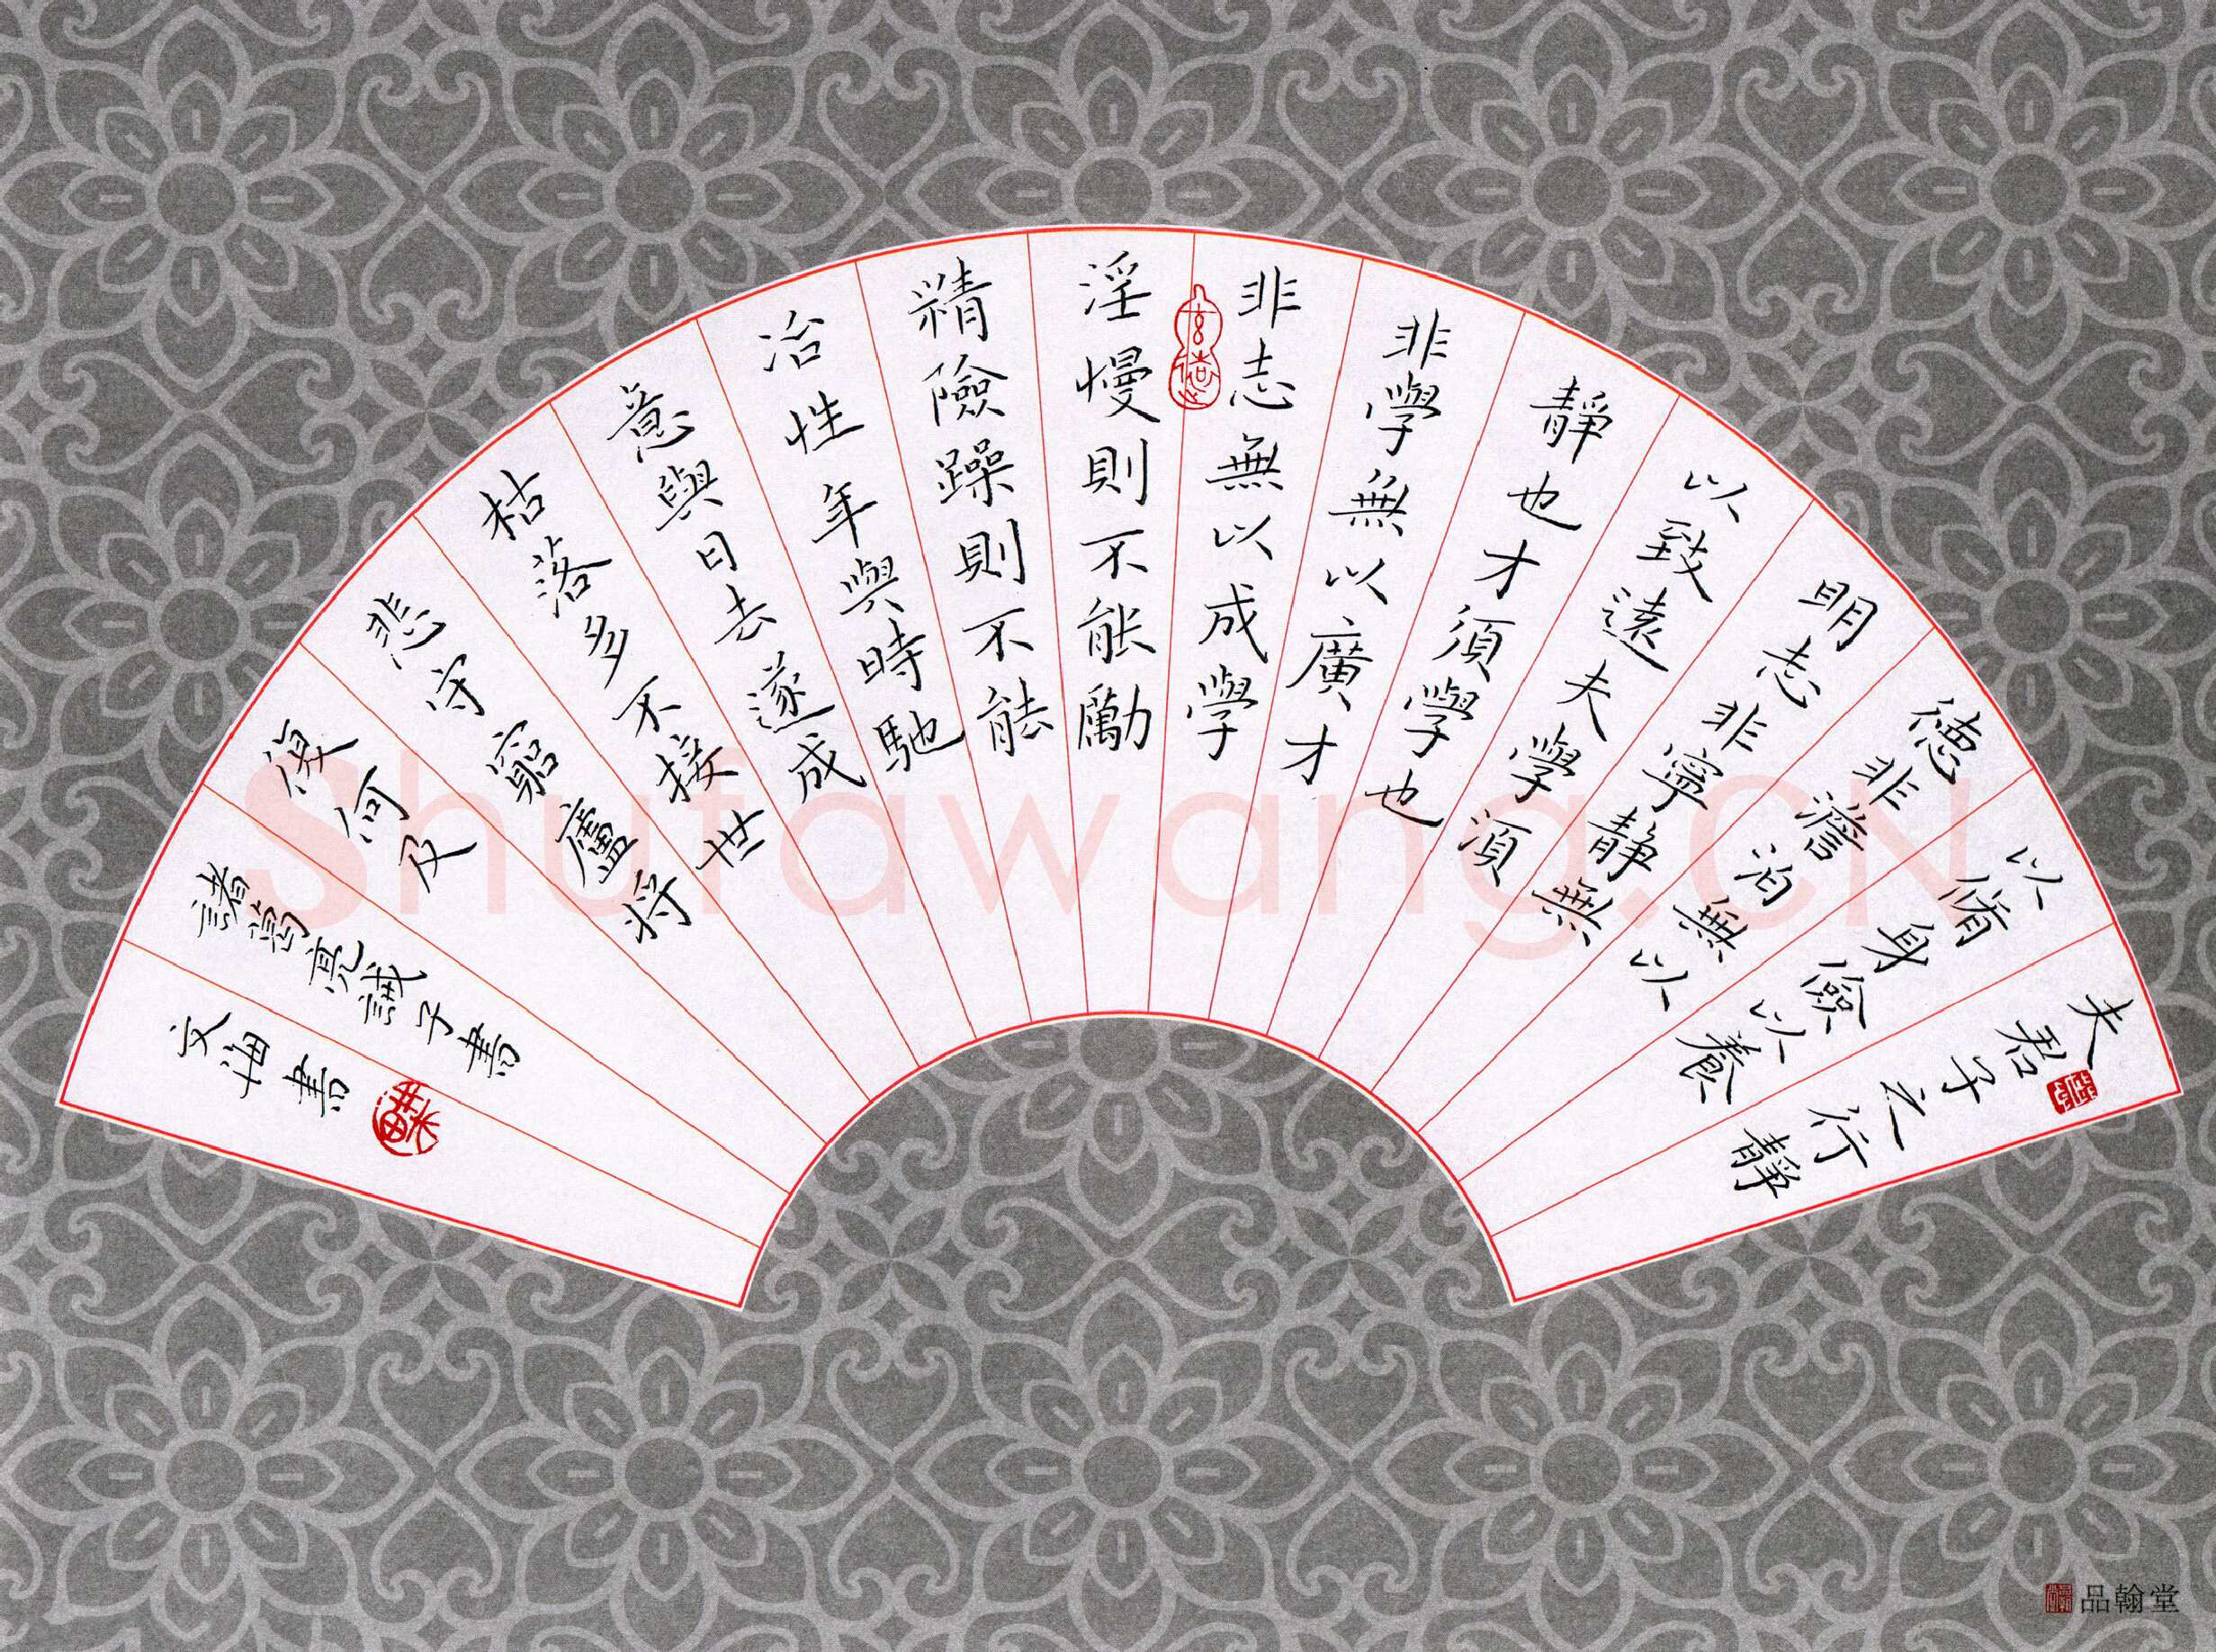 夫君子之行靜
以脩身儉以養
德非澹泊無以
明志非寧靜無
以致遠夫學須
靜也才須學也
非學無以廣才
非志無以成學
淫慢則不能勵
精險躁則不能
冶性年與時馳
意與日去遂成
枯落多不接世
悲守窮廬將
復何及
諸葛亮誡子書
文海書
Shufawang.CN
品翰堂